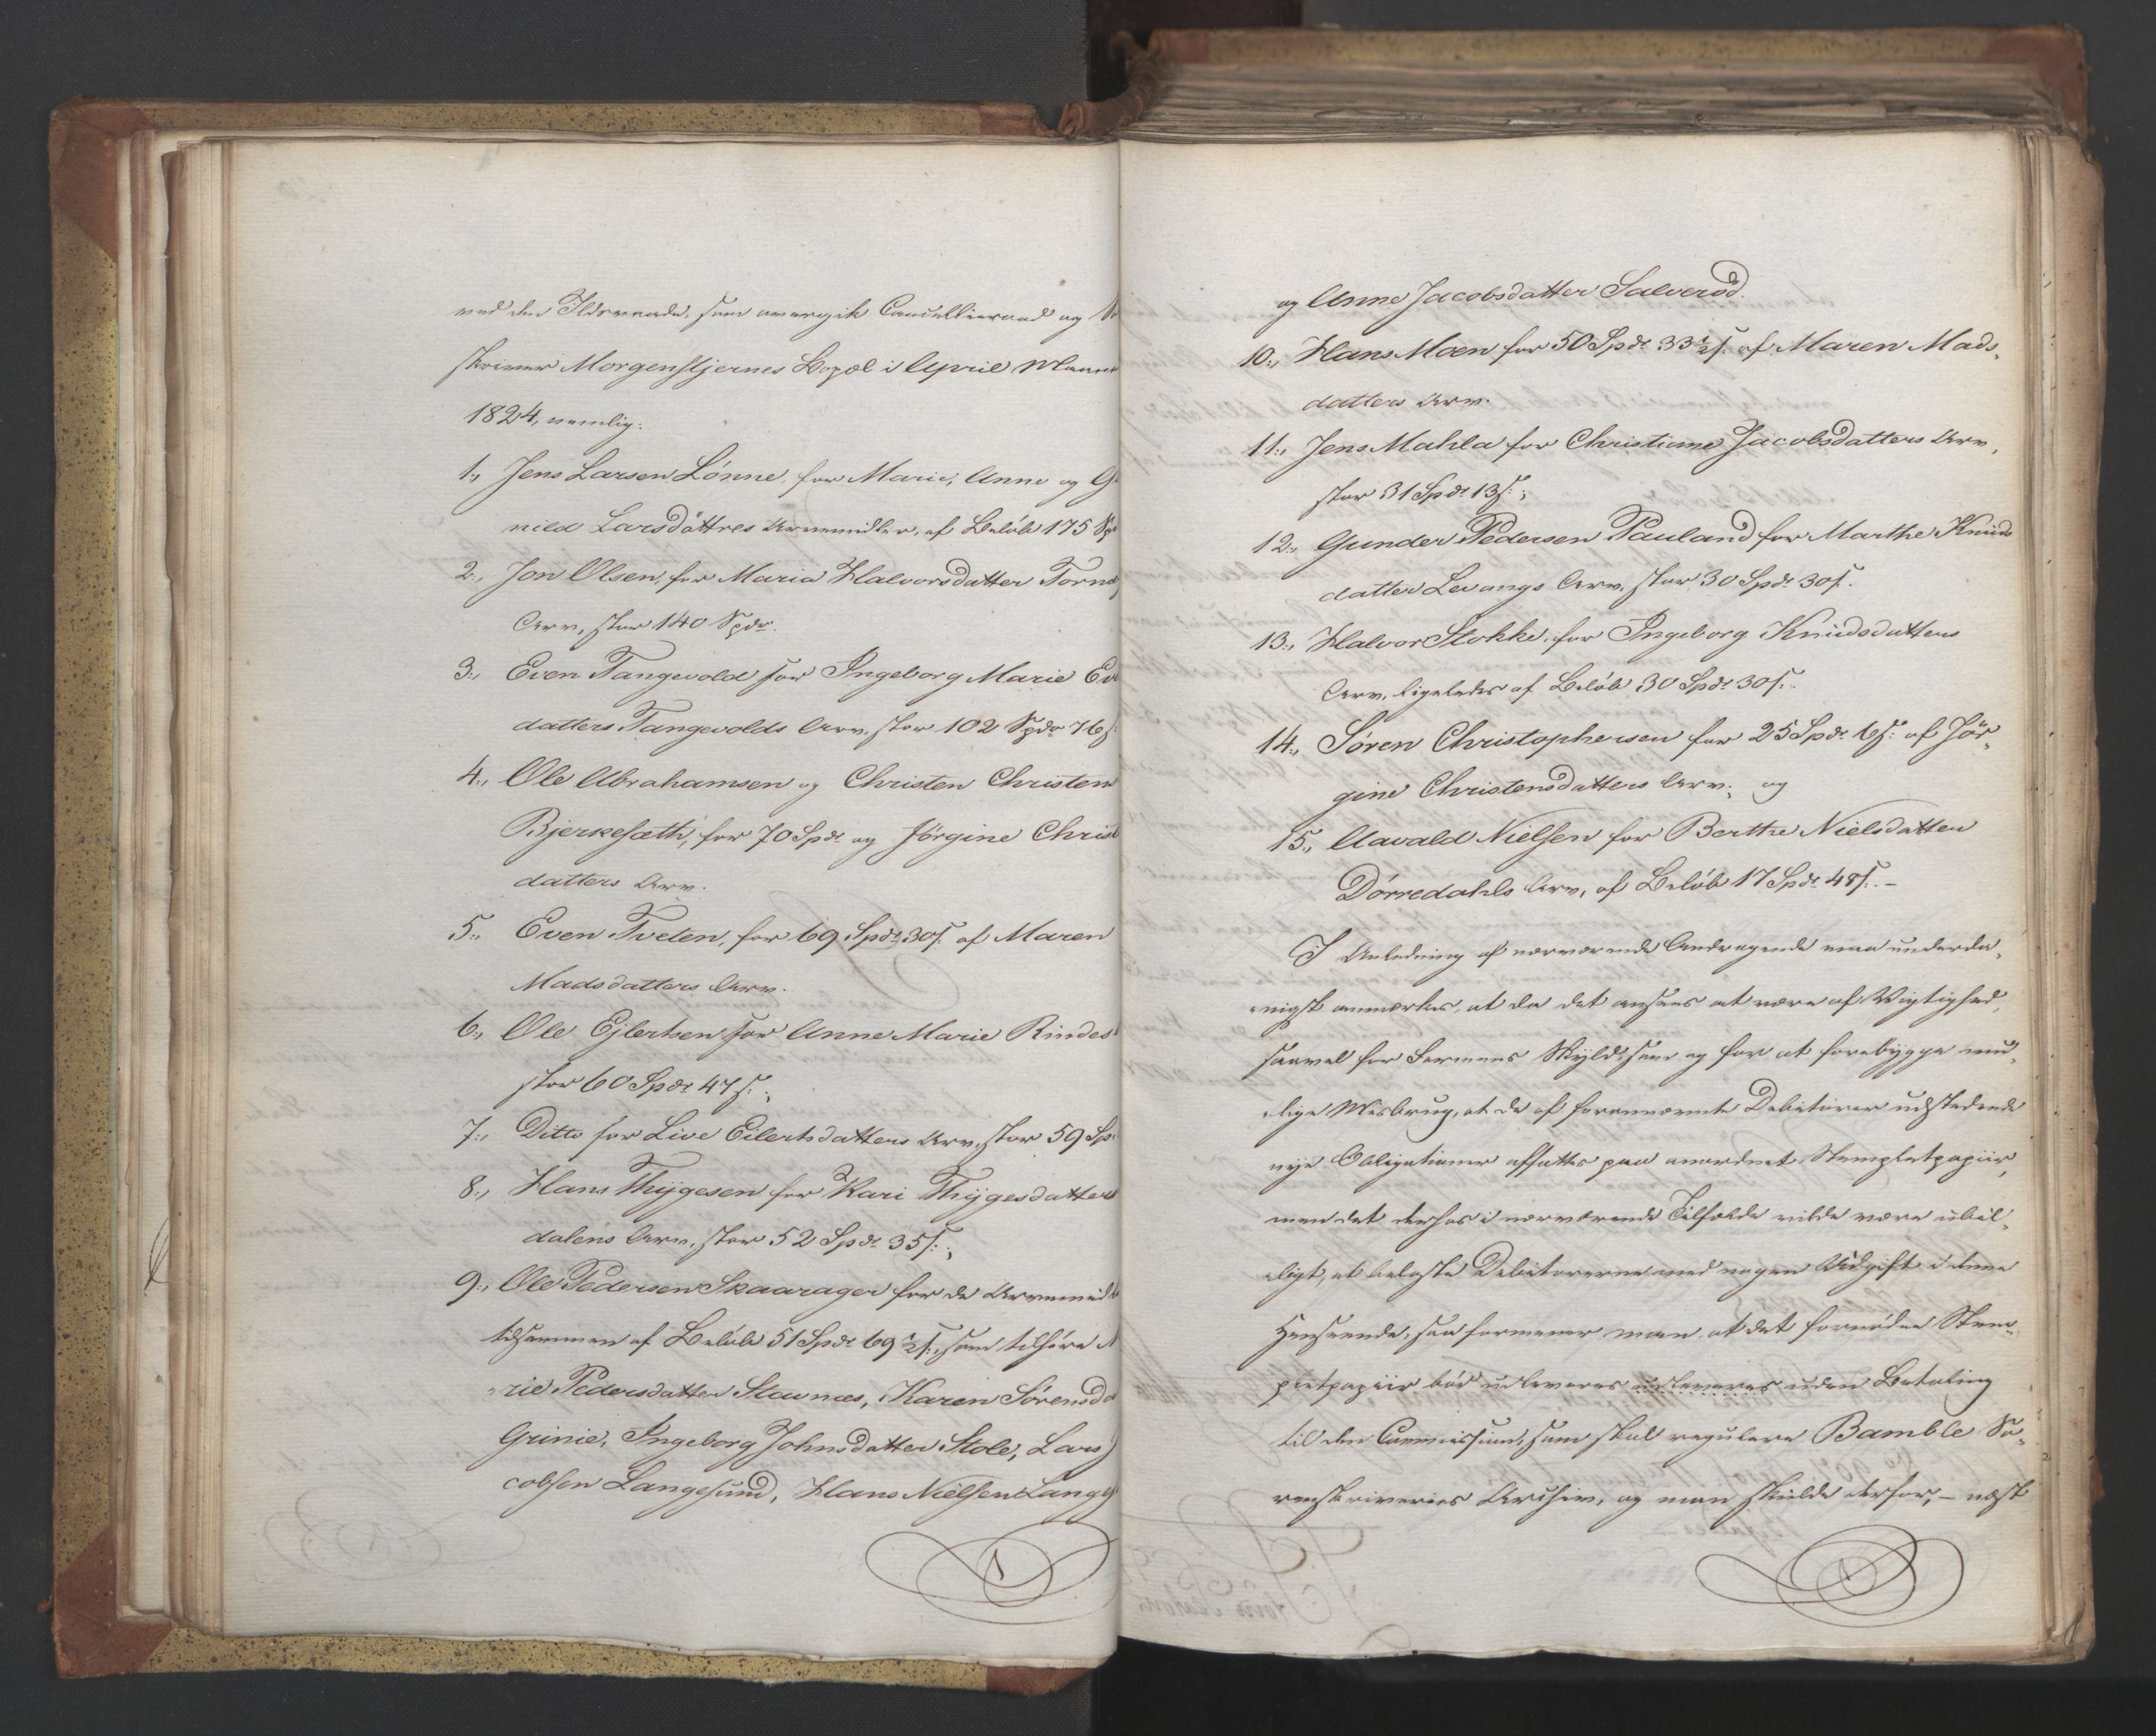 ved den Ildsvaade, som overgik Cancellieraad og
skriver Morgenstjernes Bopæl i April Maaned
1824, nemlig:
1., Jens Larsen Lönne for Marie, Anne og G
nild Larsdöttres Arvemidler, af Beløb 175 Sp
2., Jon Olsen, for Maria Halvorsdatter Tornæs
Arv, stor 140 Spdr.
3., Even Tangvold for Ingeborg Marie Ev
datters Tangvolds Arv, stor 102 Spdr 76 s:
4., Ole Abrahamsen og Christen Christens
Bjerkesæth, for 70 Spdr og Jörgine Christ
datters Arv.
5., Even Tveten, for 69 Spdr 30 s. af Maren
Madsdatters Arv.
6., Ole Ejlertsen for Anne Marie Rindes
stor 60 Spdr 47 s:;
7., Ditto for Live Eilertsdatters Arv, stor 59 Sp
8., Hans Thygesen for Kari Thygesdatters
dalens Arv, stor 52 Spdr 35 s:;
9., Ole Pedersen Skaarager for de Arvemid
tilsammen af Beløb 51 Spdr 69 1/2 s:, som tilhøre
rie Pedersdatter Stavnæs, Karen Sörensd
Grinie, Ingeborg Johnsdatter Stole, Lars J
cobsen Langesund, Hans Nielsen Lang
og Anne Jacobsdatter Salveröd.
10., Hans Moen for 50 Spdr 33 1/2 s: af Maren Mads-
datters Arv.
11., Jens Mahla for Christiane Jacobsdatters Arv,
stor 31 Spdr 13 s:;
12., Gunder Pedersen Pauland for Marthe Knuds
datter Levangs Arv, stor 30 Spdr 30 s.
13., Halvor Stokke, for Ingeborg Knudsdatters
Arv, ligeledes af Beløb 30 Spdr 30 s.
14., Sören Christophersen for 25 Spdr 6 s: af Jör-
gine Christensdatters Arv; og
15., Aavald Nielsen for Berthe Nielsdatter
Dörredahls Arv, af Beløb 17 Spdr 48 s. -
I Anledning af nærværende Andragende maa underda-
nigst anmærkes, at da det ansees at være af Vigtighed,
saavel for Formens Skyld, som og for at forebygge mu-
lige Misbrug, at de af forannævnte Debitorer udstedende
nye Obligationer affattes paa anordnet Stempletpapiir,
men det derhos i nærværende Tilfælde vilde være ubil-
ligt, at belaste Debitorerne med nogen Udgift i denne
Henseende, saa formener man, at det fornødne Stem-
pletpapiir bør udleveres udleveres uden Betaling
til den Commission, som skal regulere Bamble So-
renskriveries Archiv, og man skulde derfor, - næst